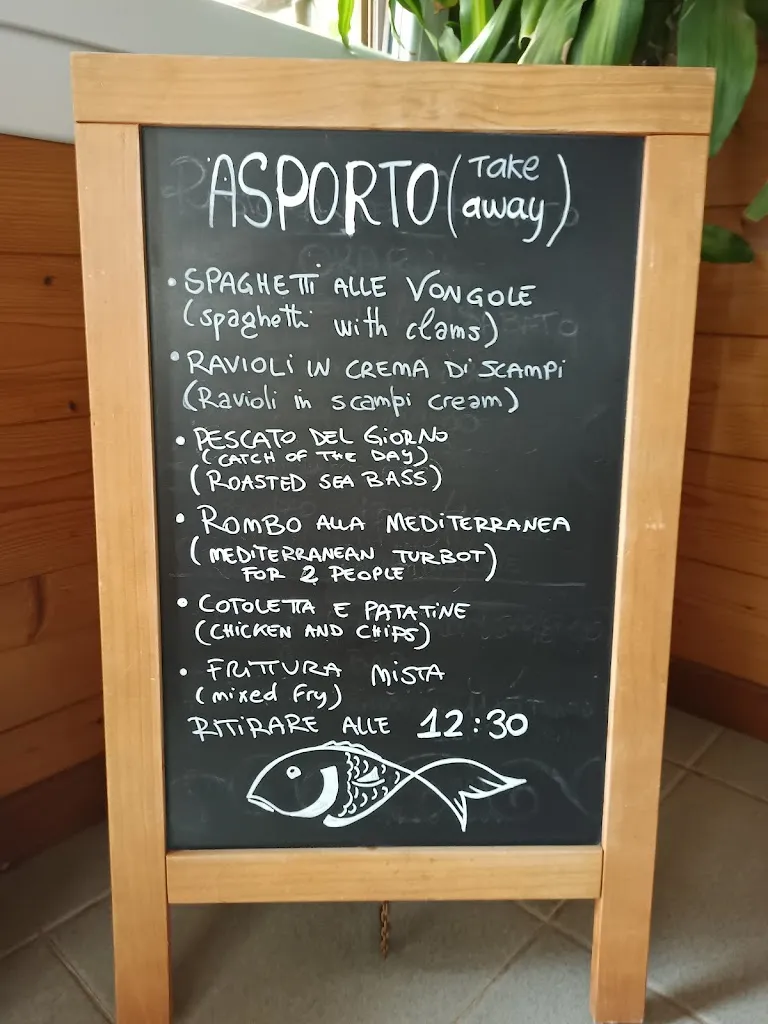 ASPORTO (Take away)
• SPAGHETTI ALLE VONGOLE
(spaghetti with clams)
• RAVIOLI IN CREMA DI SCAMPI
(Ravioli in scampi cream)
• PESCATO DEL GIORNO
(CATCH OF THE DAY)
(ROASTED SEA BASS)
• ROMBO ALLA MEDITERRANEA
(MEDITERRANEAN TURBOT)
FOR 2 PEOPLE
• COTOLETTA E PATATINE
(CHICKEN AND CHIPS)
• FRITTURA MISTA
(mixed fry)
RITIRARE ALLE 12:30